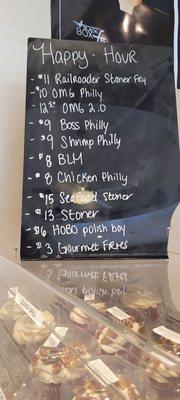 BOX
Happy - Hour
- $11 Railroader Stoner Fry
- $10 OMG Philly
- 12 OMG 2.0
- $9 Boss Philly
- $9 Shrimp Philly
- $8 BLM
- $8 Chicken Philly
- $15 Seafood Stoner
- $13 Stoner
- $6 HOBO polish boy
- $3 Gourmet Fries